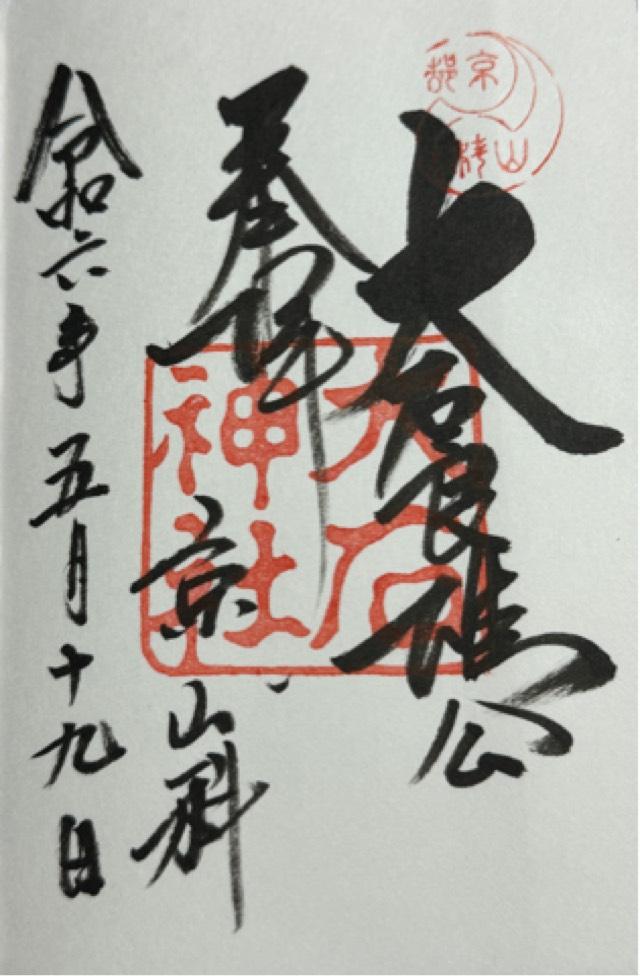 大石良雄公
奉拝
京 山科
令和六年五月十九日
大石
神社
京都
山科